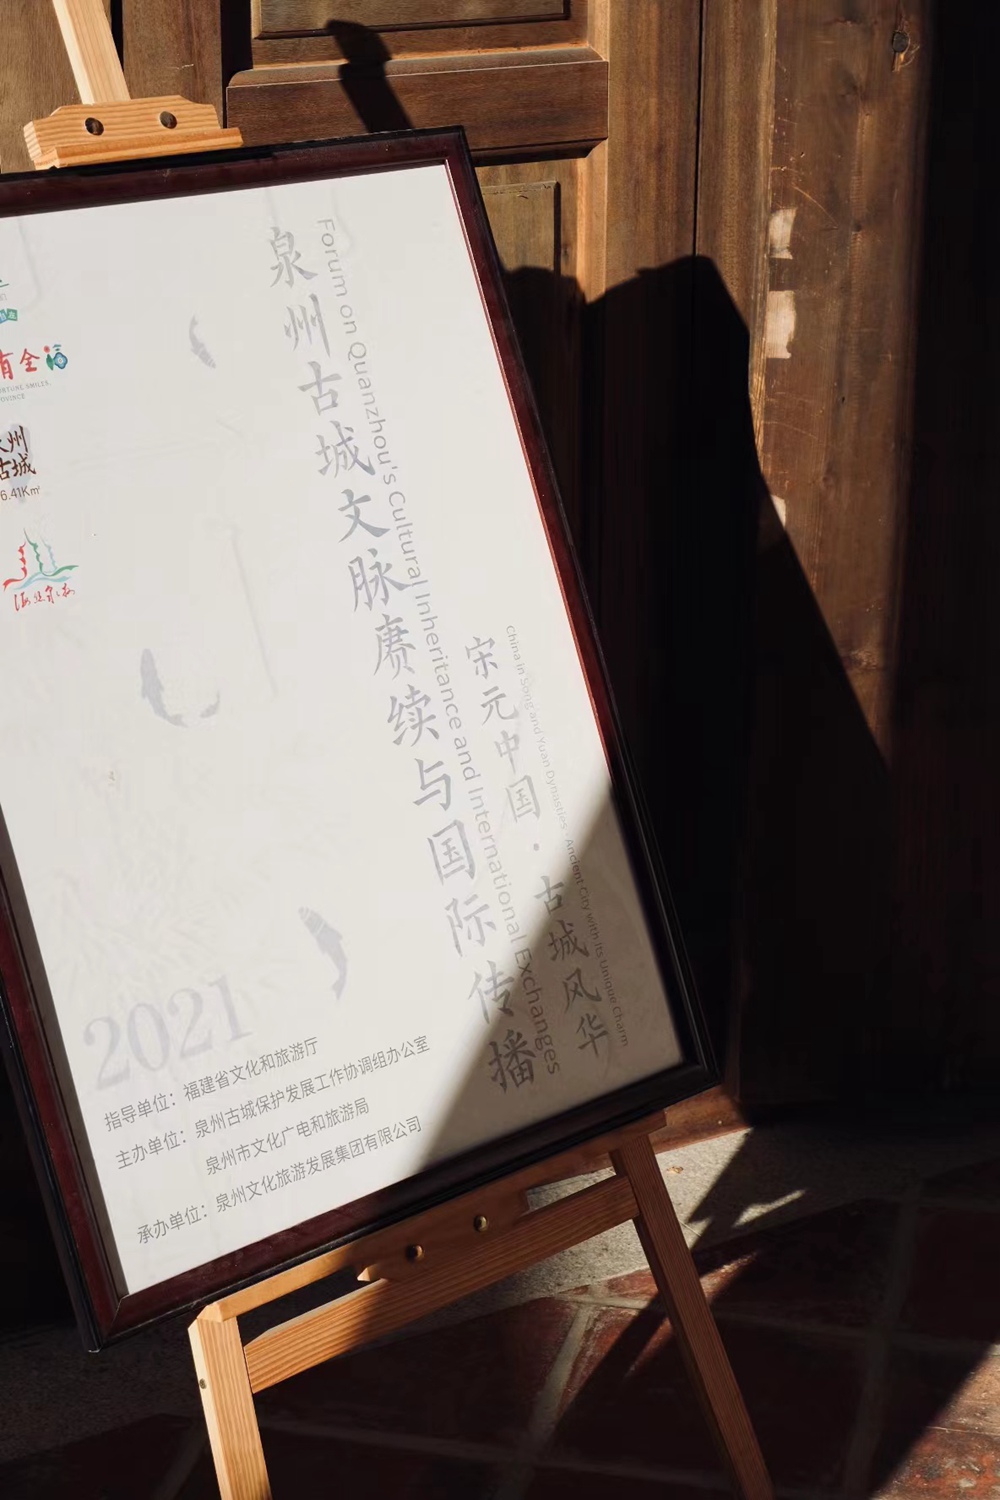 泉州古城文脉赓续与国际传播
Forum on Quanzhou's Cultural Inheritance and International Exchanges
宋元中国·古城风华
China in Song and Yuan Dynasties · Ancient City with its Unique Charm
有全福
州
古城
6.41Km²
2021
指导单位：福建省文化和旅游厅
主办单位：泉州古城保护发展工作协调组办公室
泉州市文化广电和旅游局
承办单位：泉州文化旅游发展集团有限公司